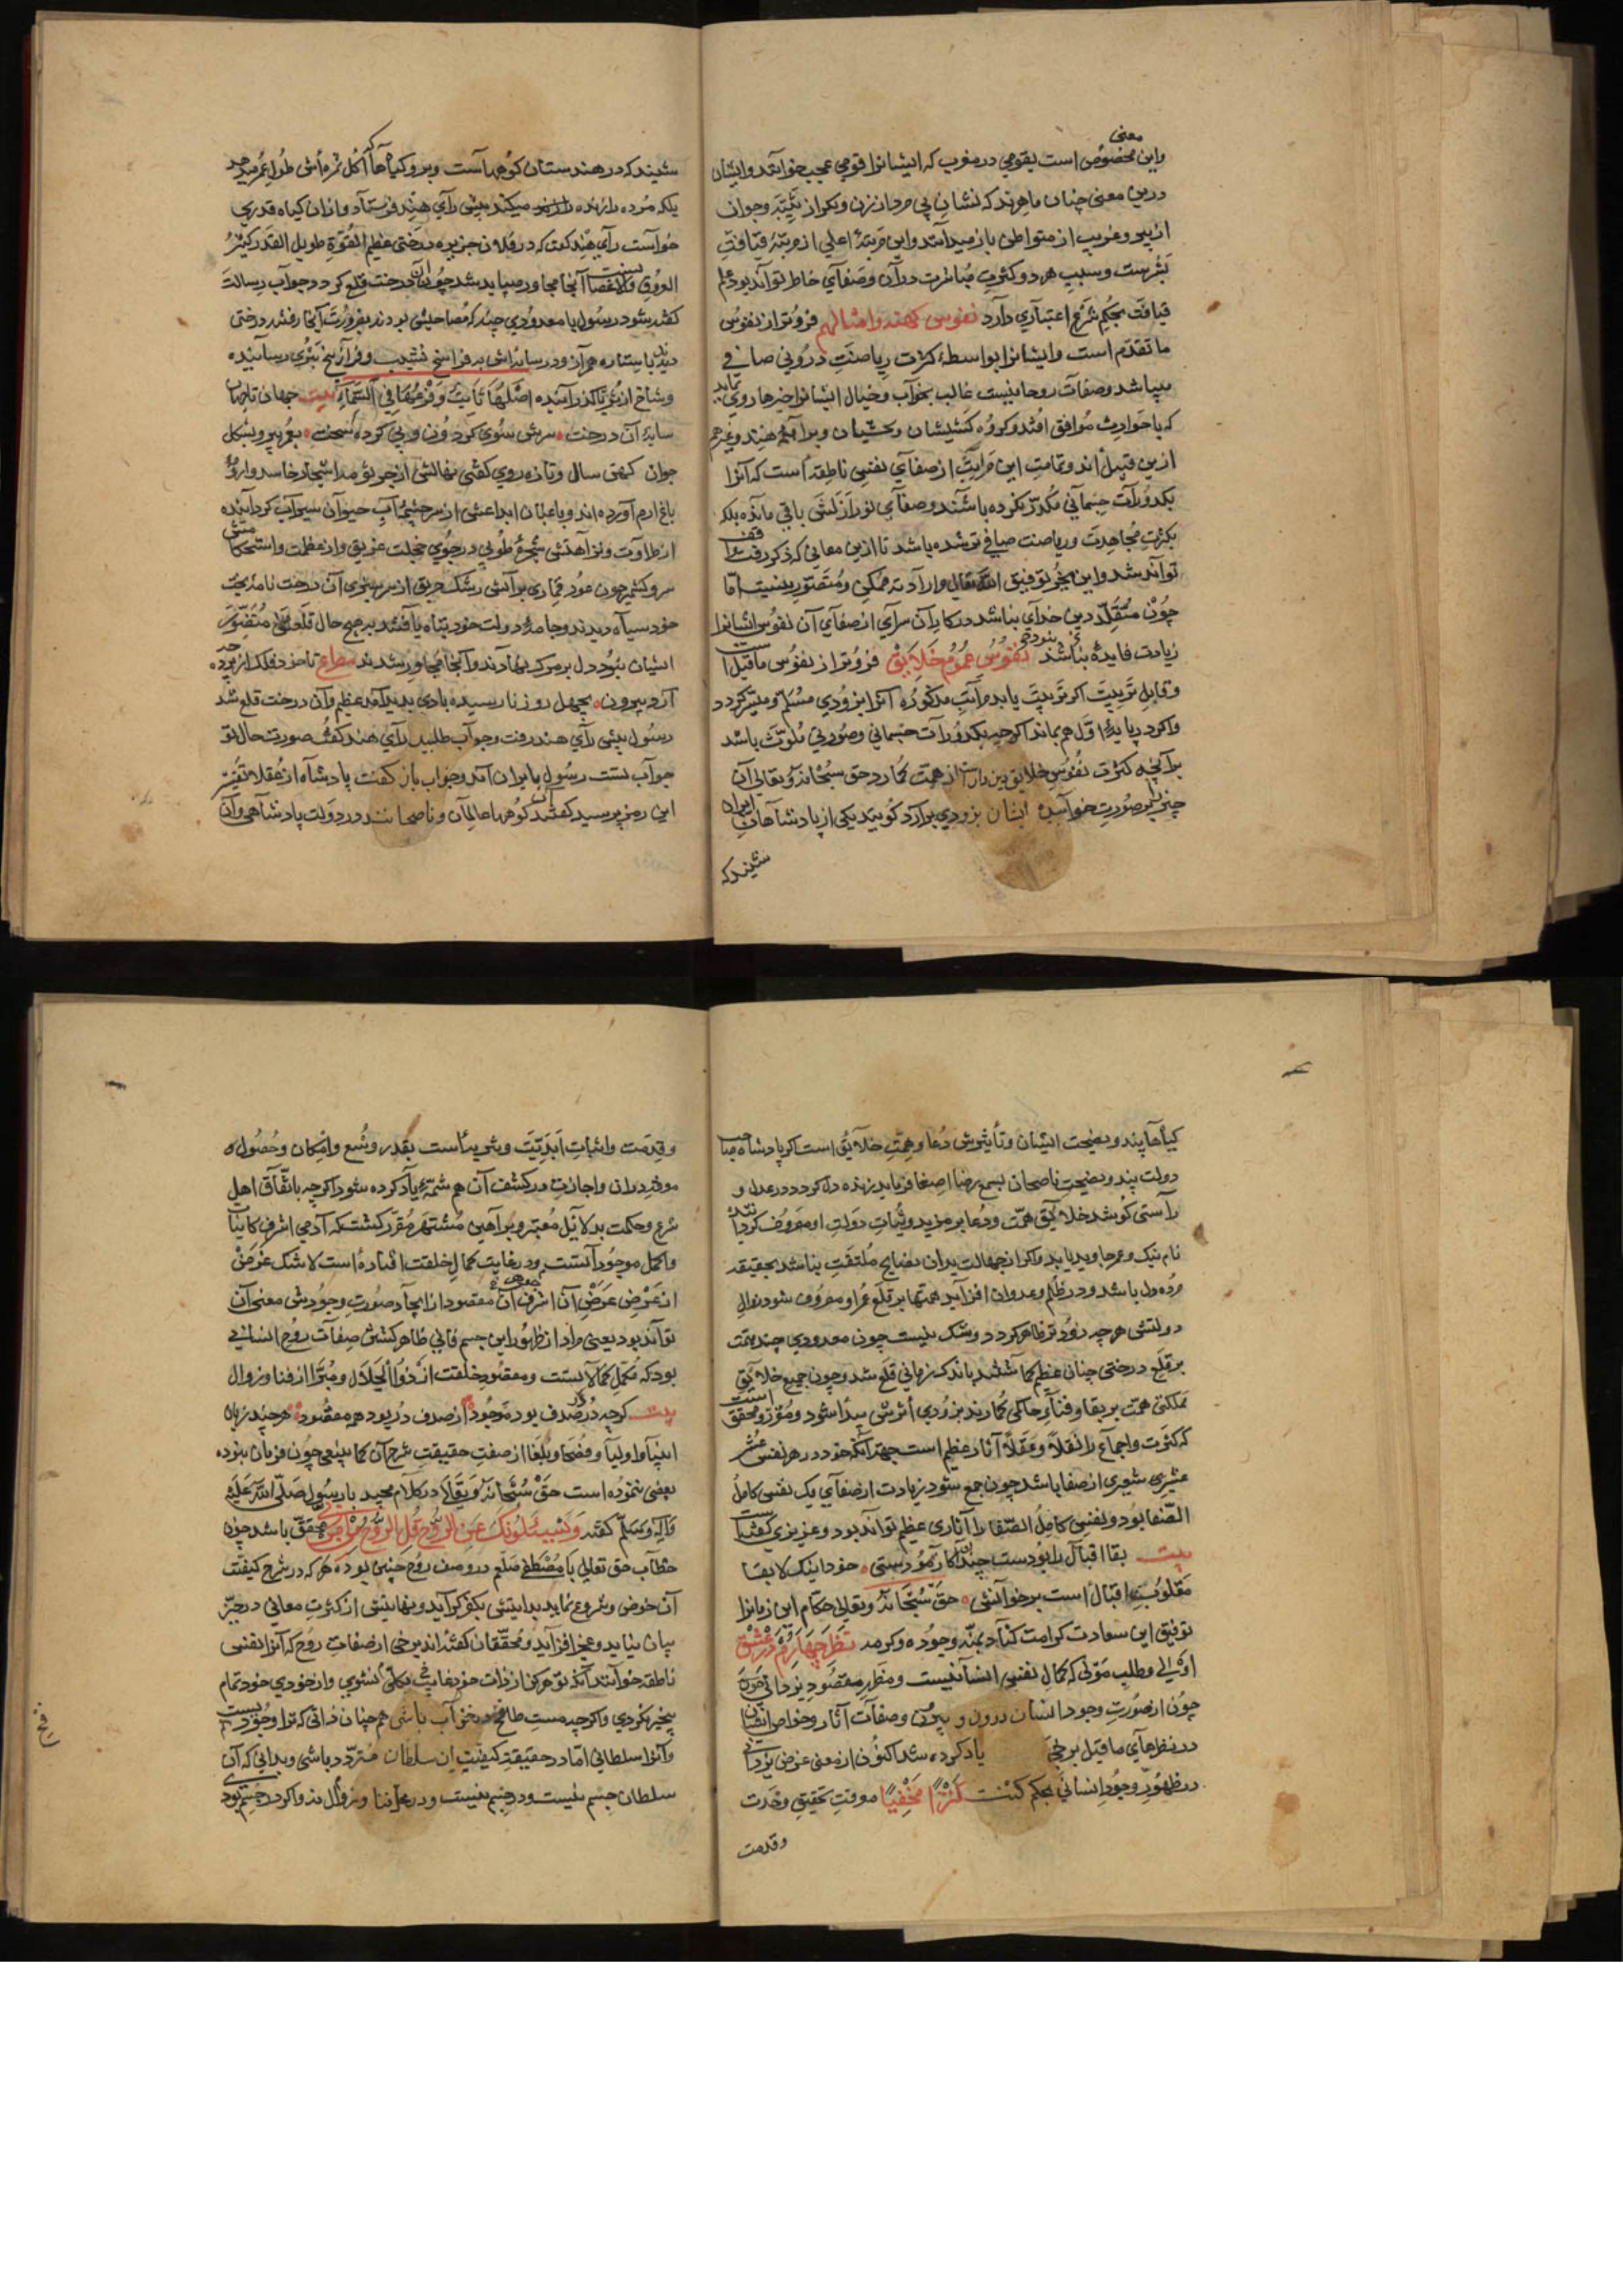 معنی
واین مخصوص است بقومی در مغرب که ایشانرا قومی عجب خوانند وایشان
درین معنی چنان ماهرند که نشان پی مرد از زن وبکر از ثیبه وجوان
از پیر وغریب از متواطن باز میدانند واین مرتبهٔ اعلی از مرتبهٔ قیافت
بشرست وسبب هر دو کثرت مباشرت در آن وصفای خاطر تواند بود علم
قیافت بحکم شرع اعتباری دارد نفوس کهنه وامثالهم فروتر از نفوس
ما تقدم است وایشانرا بواسطهٔ کثرت ریاضت درونی صافی
میباشد وصفات روحانیست غالب بخواب وخیال ایشانرا خبرها روی نماید
که با حوادث موافق افتد وکروه کشیشان وبراهمهٔ هند وغیرهم
ازین قبیل اند وتمامت این مراتب از صفای نفس ناطقه است که آنرا
بکدورات جسمانی مکدر نکرده باشند وصفای نور ازلش باقی مانده بلکه
بکثرت مجاهدت وریاضت صافی تر شده باشد تا ازین معانی که ذکر رفت واقف
تواند شد واین بجز بتوفیق الله تعالی وارادت ممکن ومتصور نیست اما
چون متقلد دین خدای نباشد درکار آن سرای از صفای آن نفوس ایشانرا
زیادت فایدهٔ نباشد نفوس عموم خلایق فروتر از نفوس ماقبل است
وقابل تربیت اکر تربیت یابد مراتب مذکوره آنرا بزودی مسلم ومیسر کردد
واکر در پایهٔ اول هم بماند اکرچه بکدورات جسمانی وصورتی ملوث باشد
بر آنچه کثرت نفوس خلایق همت کمارد حق سبحانه وتعالی آن
چیز را بر صورت خواست ایشان بزودی برآرد کویند یکی از پادشاهان ایران
شنید که
شنید که در هندستان کوهها است وبرو کیاهها که اکل ثمره اش طول عمر میدهد
بلکه مرده را زنده میکند پیش رای هند فرستاد واز آن کیاه قدری
خواست رای هند کفت که در فلان جزیره درختی عظیم القوة طویل القد کثیر
العروق والاغصان است آنجا مجاور میباید شد چون آن درخت قلع کردد جواب رسالت
کفته شود رسول با معدودی چند که مصاحبش بودند بضرورت آنجا رفتند درختی
دیدند باستاره همراز ودر سایه اش بد فراسخ نشیب وفراز بیخ بثری رسانیده
وشاخ از ثریا کذرانیده اصلها ثابت وفرعها فی السماء بیت جهان تا جهان
سایهٔ آن درخت سرش سوی کردون وپی کرده سخت بعمر پیر وبشکل
جوان کهن سال وتازه روی کفتی نهالش از جوی مدا
باغ ارم آورده اند وباغبان ابداعش از سرچشمهٔ آب حیوان سیراب کردانیده
از طراوت ونزاهتش شجرهٔ طوبی در جوی خجلت غریق واز عظمت واستحکامش
سرو کشمیر چون عود قماری بر آتش رشک حریق از سرسبزی آن درخت نامهٔ بخت
خود سیاه دیدند وجامهٔ دولت خود تباه یافتند بر هیچ حال قلع متصور
ایشان نبود دل بر مرک نهادند وآنجا مجاور شدند مصراع تا خود فلک از پرده چه
آرد بیرون بچهل روز نا رسیده بادی پدید آمد عظیم وآن درخت قلع شد
رسول پیش رای هند رفت وجواب طلبید رای هند کفت صورت حال تو
جواب تست رسول بایران آمد وجواب باز کفت پادشاه از عقلا تفسیر
این رمز پرسید کفتند آن کوهها عالمان وناصحانند در دولت پادشاهی وآن
کیاهها پند ونصیحت ایشان وتأثیرش دعا وهمت خلایق است اکر پادشاه صاحب
دولت پند ونصیحت ناصحان بسمع رضا اصغا فرماید زنده دل کردد ودر عدل و
راستی کوشد خلایق همت ودعا بر مزید وثبات دولت او مصروف کردانند
نام نیک وعمر جاوید یابد واکر از جهالت بدان نصایح ملتفت نباشد بحقیقت
مرده دل باشد ودر ظلم وعدوان افزاید همتها بر قلع عمر او مصروف شود زوال
دولتش هرچه زودتر ظاهر کردد وشک نیست چون معدودی چند همت
بر قلع درختی چنان عظیم کماشتند باندک زمانی قلع شد وچون جمیع خلایق
مملکتی همت بر بقا وفنای حاکمی کمارند بزودی اثرش پیدا شود ومقرر ومحقق است
که کثرت واجماع را نقلا وعقلا آثار عظیم است جهة آنکه خود در هر نفس عشر
عشیری شعیری از صفا باشد چون جمع شود زیادت از صفای یک نفس کامل
الصفا بود ونفس کامل الصفا را آثاری عظیم تواند بود وعزیزی کفته است
بیت بقا اقبال را بودست چندان کازموٓدستی خود اینک لا بقا
مقلوب اقبال است بر خوانش حق سبحانه وتعالی حکام این زمانرا
توفیق این سعادت کرامت کناد بمنه وجوده وکرمه نظر چهارم در عشق
اوتالی وطلب مولی که کمال نفس انسانیست ومنظر مقصود یزدانی چون
چون از صورت وجود انسان درون وبیرون وصفات آثار وخواص ایشان
در نظرهای ماقبل برخی یاد کرده شد اکنون از معنی غرض یزدانی
در ظهور وجود انسانی بحکم کنت کنزا مخفیا معرفت تحقیق وحدت
وقدمت
وقدمت واثبات ابدیت وسرمدیتاست بقدر وسع وامکان وحصول
موفد دران واجازت در کشف آن هم شمهٔ یاد کرده شود اکرچه باتفاق اهل
شرع وحکمت بدلایل معتبر وبراهین مشتهر مقرر کشت که آدمی اشرف کاینات
واکمل موجودات است ودر غایت کمال خلقت افتاده است لاشک غرض
از عرض عرض آن اشرف آن جوهر مقصود از ایجاد صورت وجودش معنی آن
تواند بود یعنی مراد از ظهور این جسم فانی ظاهر کشتن صفات روح انسانی
بود که مکمل کمالاتست ومقصود خلقت از ذو الجلال ومبرا از فنا وزوال
بیت کرچه در صدف بود موجود از صدف در بود همه مقصود هرچند زبان
انبیا واولیا وفصحا وبلغا از صفت حقیقت شرح آن کما ینبغی چون فرمان نبوده
بعضی ننموده است حق سبحانه وتعالی در کلام مجید با رسول صلی الله علیه
وآله وسلم کفته ویسئلونک عن الروح قل الروح من امر ربی محقق باشد چون
خطاب حق تعالی با مصطفی صلعم در وصف روح چنین بوده هرکه در شرح کیفیت
آن خوض وشروع نماید بدایتش بکفر کراید ونهایتش از کثرت معانی در حیز
بیان نیاید وعجز افزاید ومحققان کفته اند برخی از صفات روح که آنرا نفس
ناطقه خوانند آنکه تو هرکز از ذات خود غایب بکلی نشوی واز خودی خود تمام
بیخبر نکردی واکرچه مست طافح ودر خواب باشی همچنان دانی که ترا وجودیست
وآنرا سلطانی اما در حقیقت کیفیت آن سلطان متردد باشی وبدانی که آن
سلطان جسم نیست ودر جسم نیست ودر معرض فنا وزوال نه واکر در جسم بودی